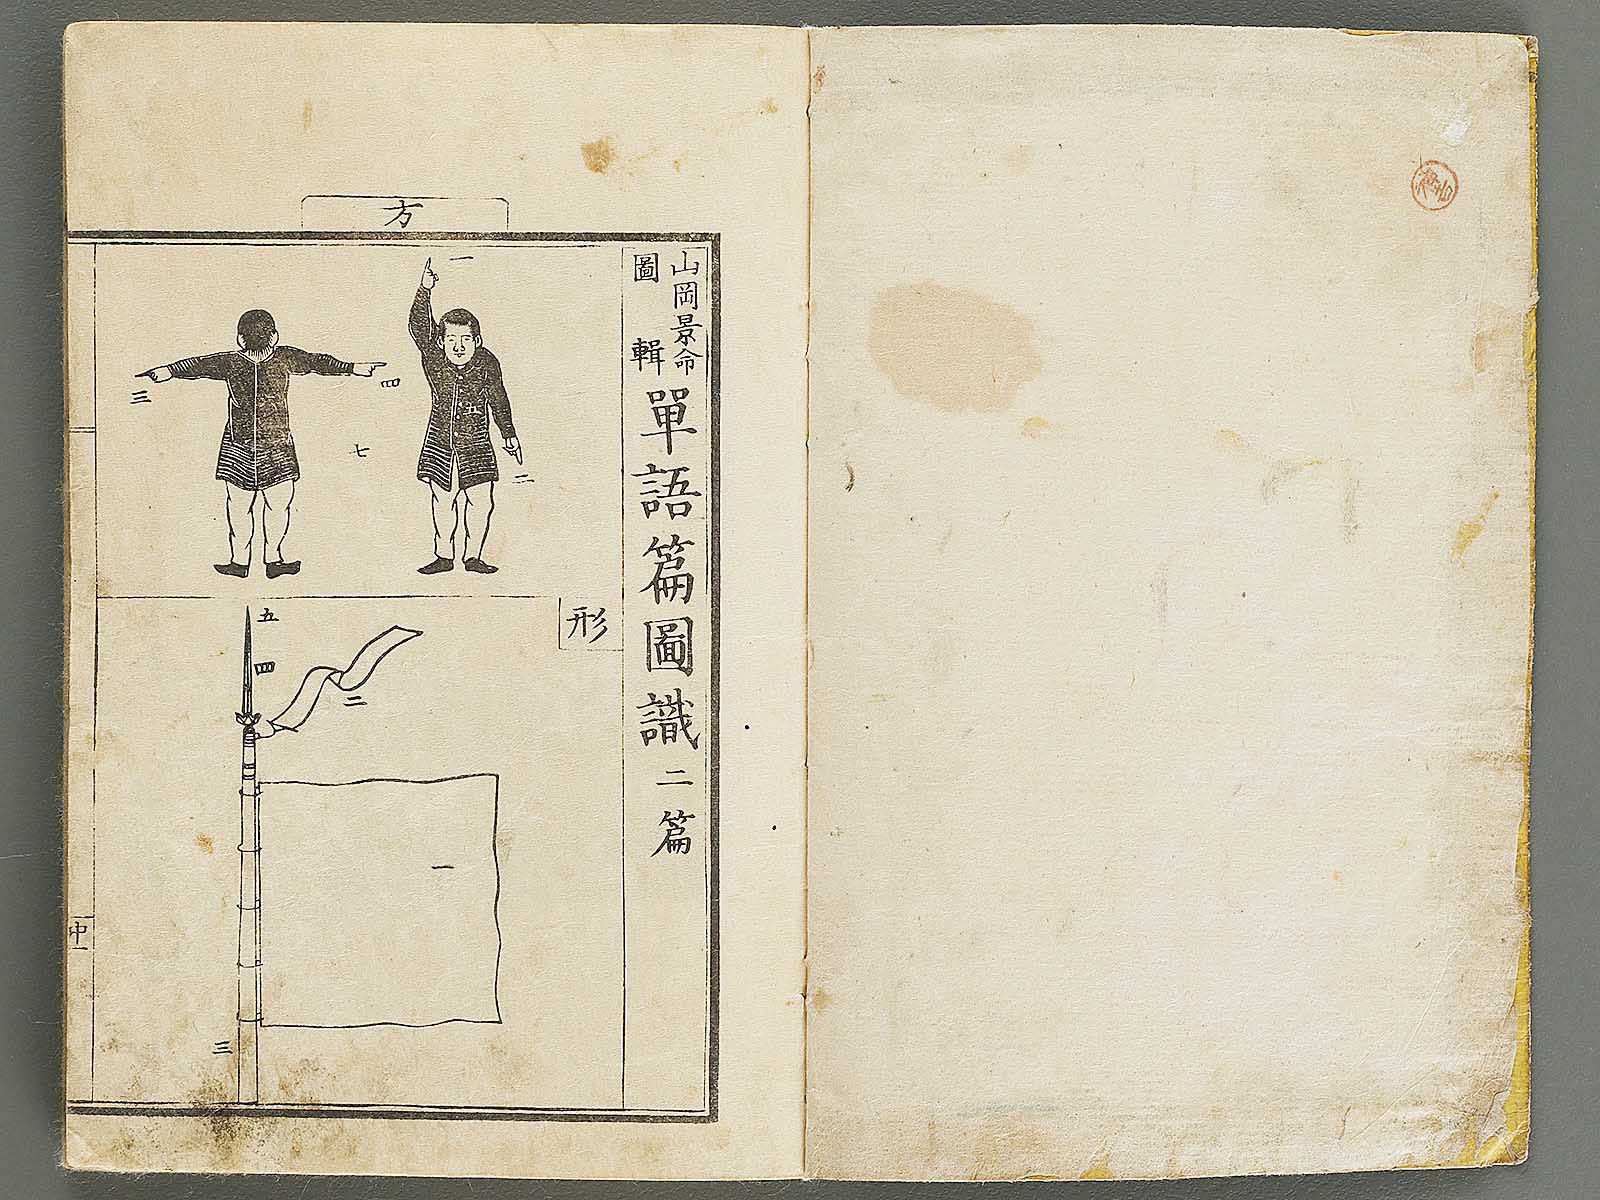 山岡景命
圖輯
單語篇圖識二篇
方
一
二
三
四
五
七
形
一
二
三
四
五
中一